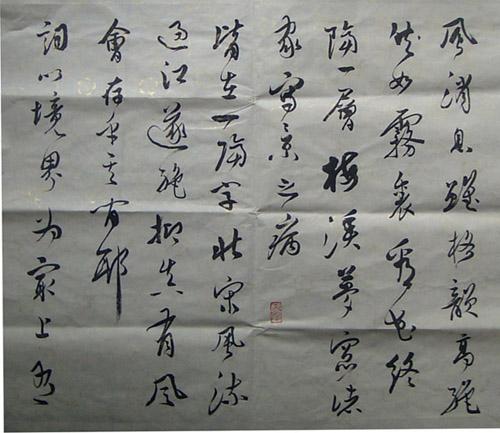 風消息雖格韻高絕
然如霧裏看花終
隔一層梅溪夢窗諸
家寫景之病
皆在一隔字北宋風流
過江遂絕抑真有風
會存乎其間耶
詞以境界為最上有